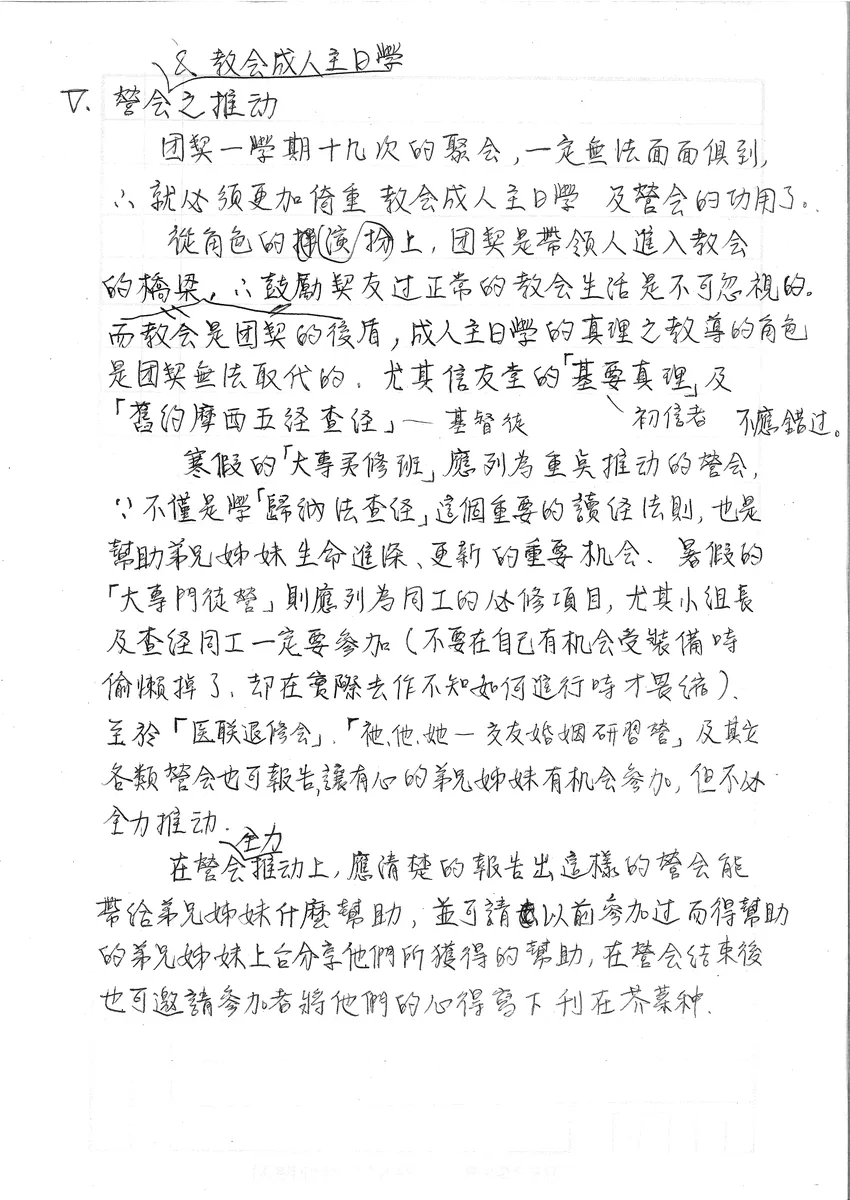 & 教会成人主日學
V. 營会之推动
团契一學期十九次的聚会,一定無法面面俱到,
∴就必须更加倚重 教会成人主日學 及營会的功用了。
從角色的扮演上,团契是帶領人進入教会
的橋梁,∴鼓勵契友过正常的教会生活是不可忽視的。
而教会是团契的後盾,成人主日學的真理之教導的角色
是团契無法取代的. 尤其信友堂的「基要真理」及
「舊約摩西五经查经」— 基督徒 初信者 不應錯过。
寒假的「大專灵修班」應列為重奌推动的營会,
∵不僅是學「歸納法查经」這個重要的讀经法則,也是
幫助弟兄姊妹生命進深、更新的重要机会. 暑假的
「大專門徒營」則應列為同工的必修項目,尤其小組長
及查经同工一定要參加(不要在自己有机会受裝備時
偷懶掉了、却在實際去作不知如何進行時才畏縮).
至於「医联退修会」.「祂.他.她—交友婚姻研習營」及其它
各類營会也可報告,讓有心的弟兄姊妹有机会參加,但不必
全力推动.
在營会全力推动上,應清楚的報告出這樣的營会能
帶給弟兄姊妹什麼幫助,並可請以前參加过而得幫助
的弟兄姊妹上台分享他們所獲得的幫助,在營会結束後
也可邀請參加者將他們的心得寫下刊在芥菜种.